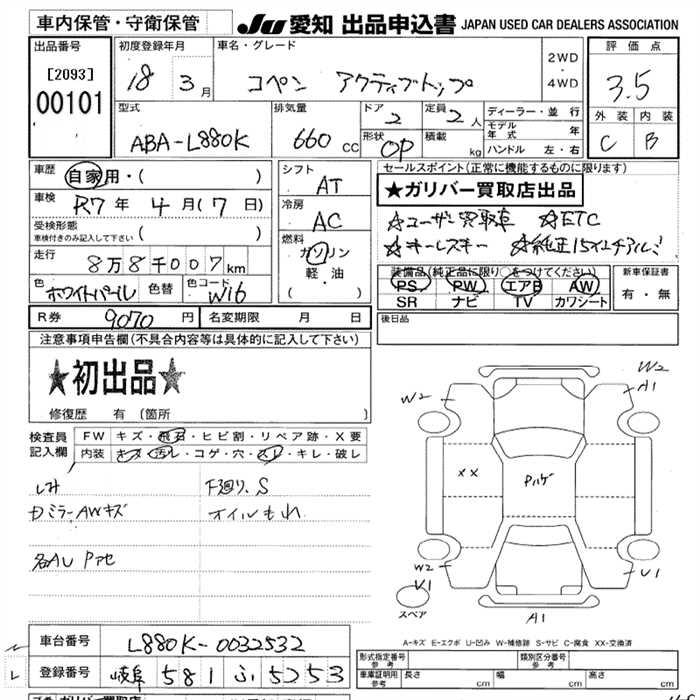 車内保管・守衛保管
JU 愛知 出品申込書 JAPAN USED CAR DEALERS ASSOCIATION
出品番号
[2093]
00101
初度登録年月
18 3月
車名・グレード
コペン アクティブトップ
2WD
・
4WD
評価点
3.5
外装 内装
C B
型式
ABA-L880K
排気量
660 CC
ドア
2
定員
2人
形状
OP
積載
kg
ディーラー・並行
モデル年式 年
ハンドル 左・右
車歴
自家用・( )
車検
R7年 4月(7日)
受検形態
車検付きのみ記入して下さい ( )
走行
8万8千007km
色
ホワイトパール
色替
色コード
W16
シフト
AT
冷房
AC
燃料
ガソリン
軽・油
( )
セールスポイント(正常に機能するものに限ります)
★ガリバー買取店出品
☆ユーザー買取車 ☆ETC
☆キーレスキー ☆純正15インチアルミ
装備品(純正品に限り○をつけてください)
PS PW エアB AW
SR ナビ TV カワシート
新車保証書
有・無
R券 9070円
名変期限 月 日
後日品
注意事項申告欄(不具合内容等は具体的に記入して下さい)
★初出品★
修復歴 有(箇所 )
検査員
記入欄
FW キズ・飛石・ヒビ割・リペア跡・X要
内装 キズ・汚レ・コゲ・穴・スレ・キレ・破レ
しみ
下廻り、S
カミラーAWキズ
オイルもれ
各AU Pアセ
W2
W2
A1
XX
Pハゲ
W2
V1
U1
スペア
A1
A-キズ E-エクボ U-凹み W-補修跡 S-サビ C-腐食 XX-交換済
車台番号
L880K-0032532
登録番号
岐阜 581 ふ 5253
形式指定番号
参考
類別区分番号
参考
車庫証明用
参考
長さ cm 幅 cm 高さ cm
ガリバー買取店